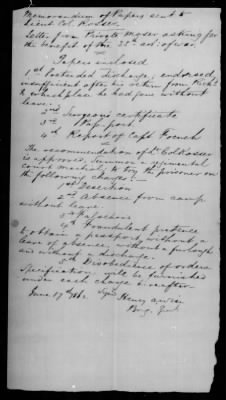 Memorandum of Papers sent to
Lieut Col. Rosser
Letter from Private Moses asking for
the benefit of the 25th art. of war.
Papers enclosed
1st Pretended discharge, endorsed
insufficient after his return from Rich'd
to which place he had gone without
leave.
2nd Surgeon's certificate
3rd Pass port
4th Report of Capt French
The recommendation of Lt Col Rosser
is approved, Summon a regimental
court martial to try the prisoner on
the following charges:—
1st Desertion
2nd Absence from camp
without leave.
3rd Falsehood
4th Fraudulent pretence
to obtain a passport, without a
leave of absence, without a furlough
and without a discharge.
5th Disobedience of orders
Specifications will be furnished
under each charge hereafter
June 17th 1862 Henry A Wise
Brig. Genl